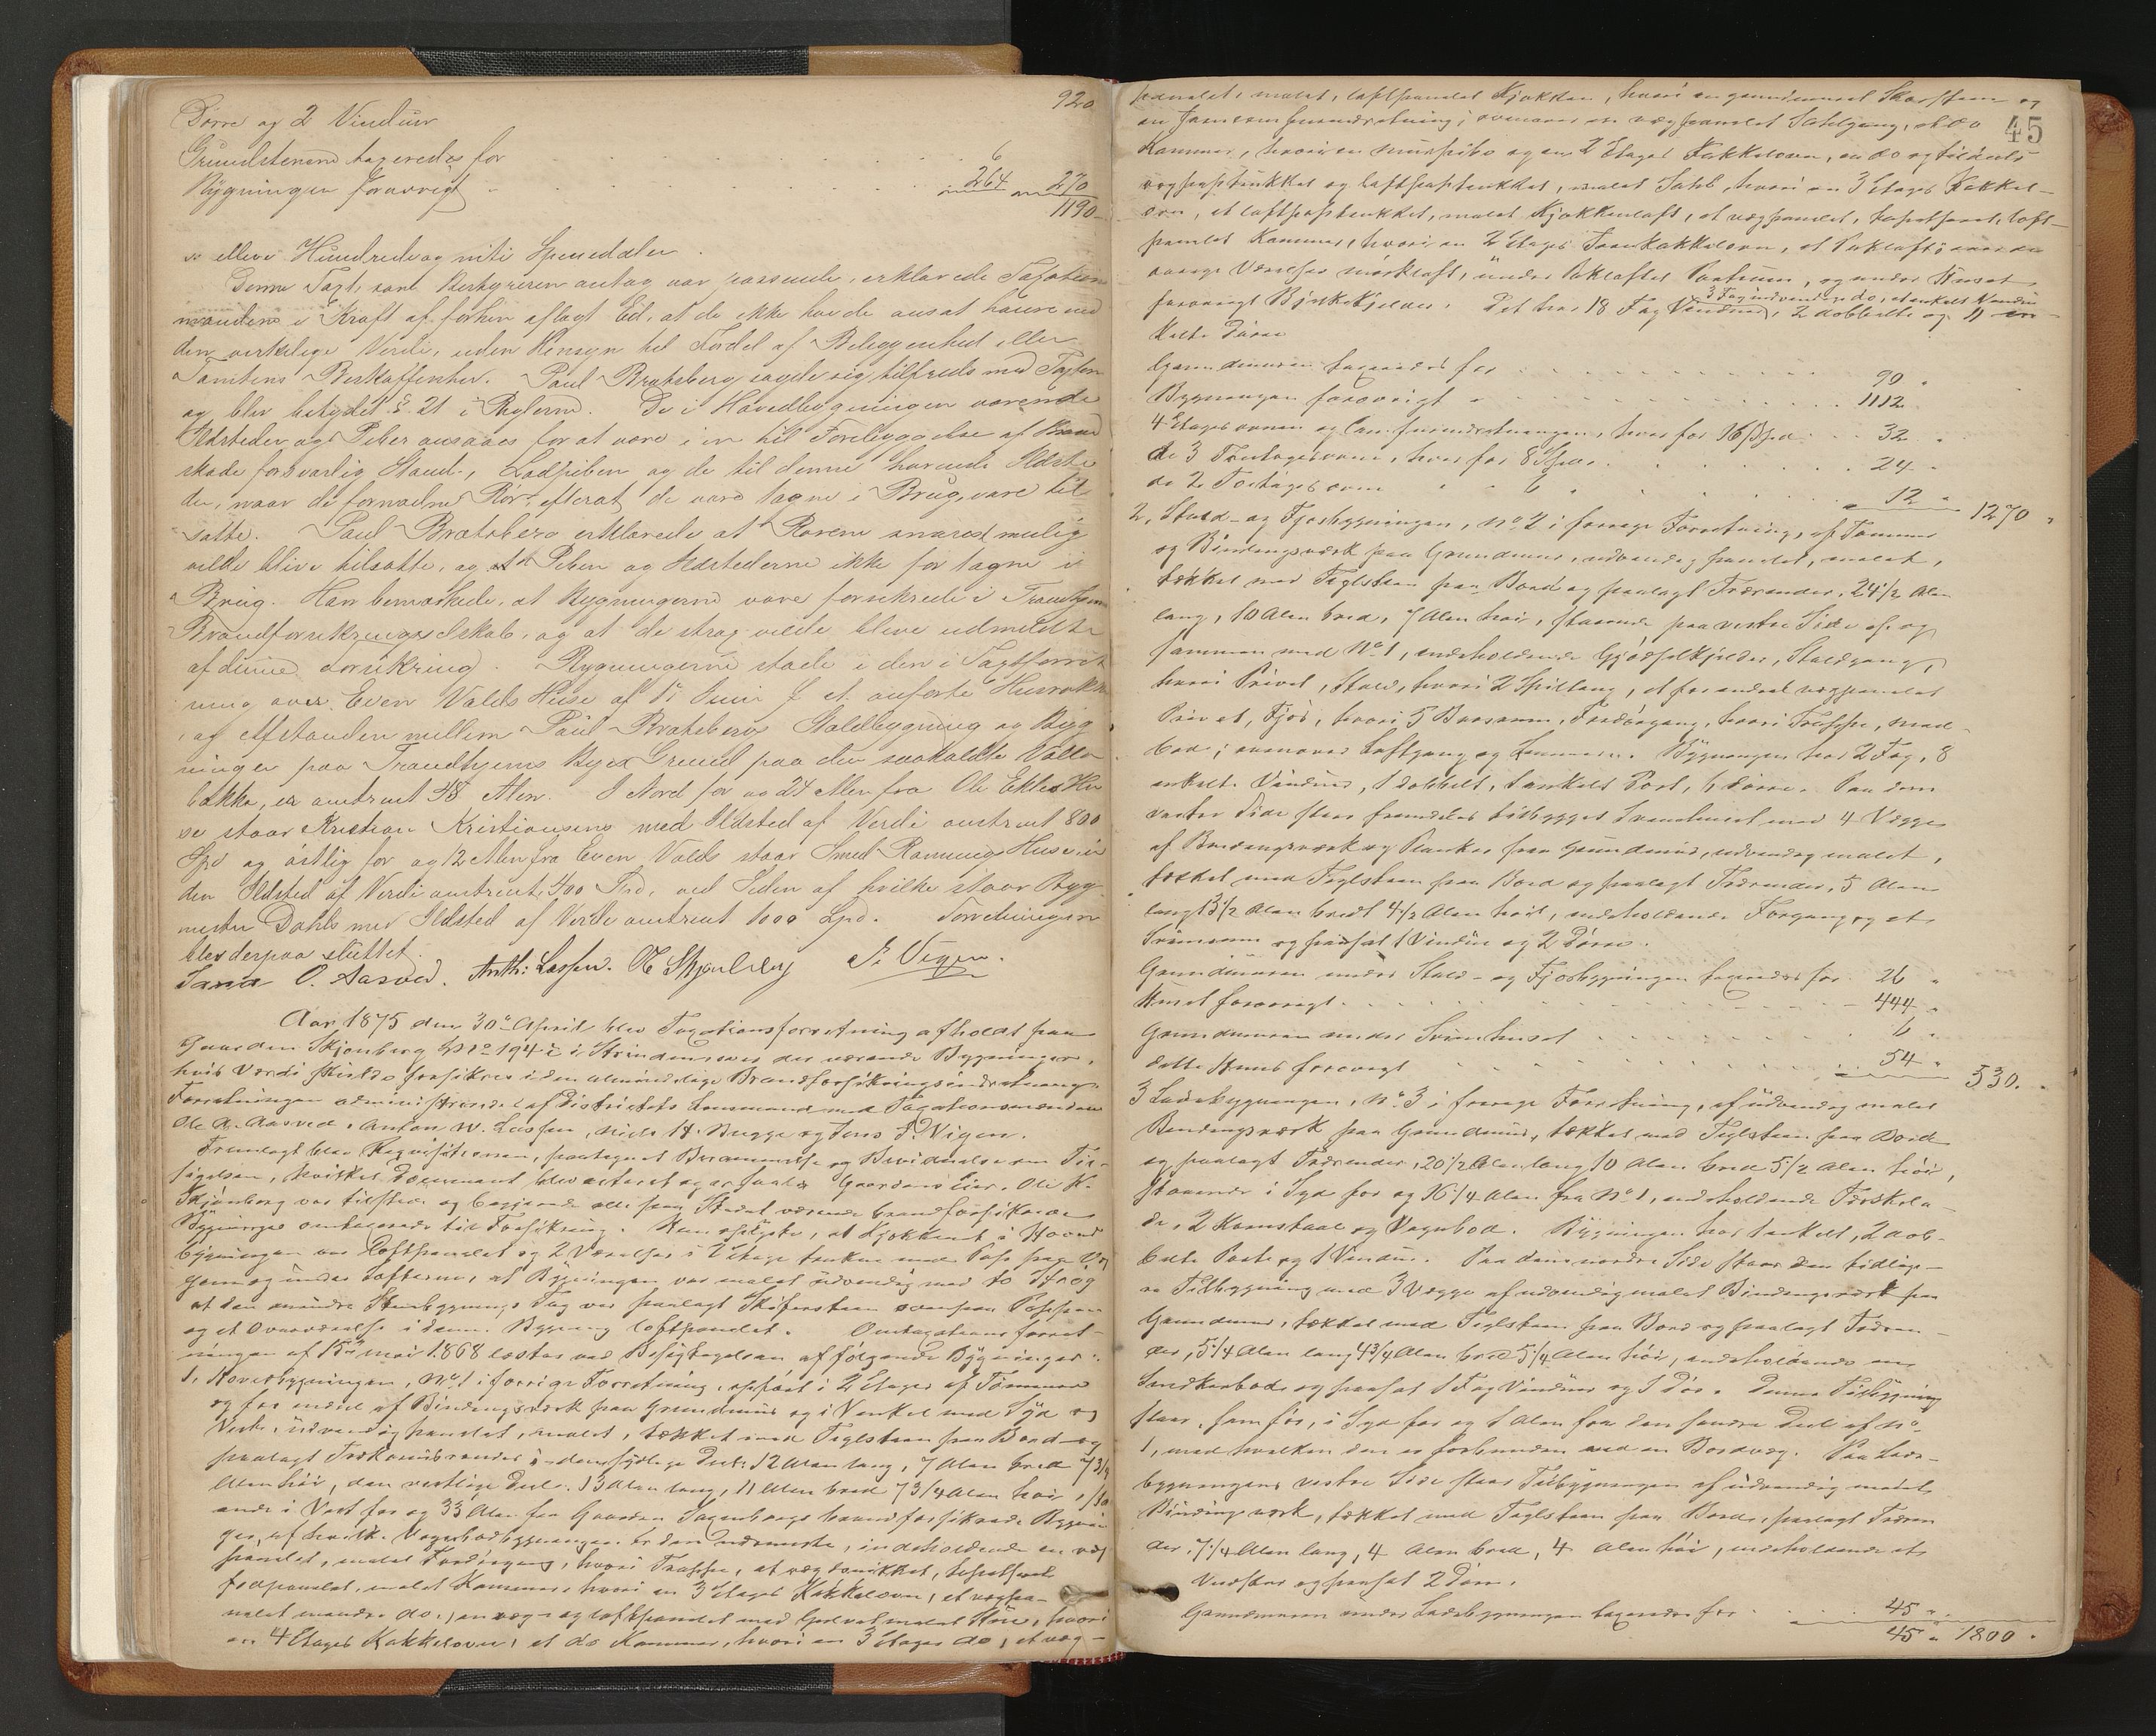 920
Dörre og 2 Vinduer
Grundstenene taxeredes for 6
Bygningen forøvrigt 264 270
1190
er elleve Hundrede og nitti Speciedaler.
Denne Taxt, som Bestyreren antog var passende, erklærede Taxations
mændene i Kraft af forhen aflagt Ed, at de ikke havde ansat høiere end
den virkelige Verdi, uden Hensyn til Fordel af Beliggenhed eller
Tomtens Beskaffenhed. Paul Bratsberg sagde sig tilfreds med Taxten
og blev betydet § 21 i Reglerne. De i Hovedbygningen værende
Ildsteder og Piber ansaaes for at være i en til Forebyggelse af Brand
skade forsvarlig Stand, Ladpiben og de til denne hørende Ildste
der, naar de fornødne Rör, efterat de vare tagne i Brug, vare til
satte. Paul Bratsberg erklærede at Rörene snarest mulig
vilde blive tilsatte, og at Piben og Ildstederne ikke før tagne i
Brug. Han bemærkede, at Bygningerne vare forsikrede i Trondhjems
Brandforsikringsselskab, og at de strax vilde bleve udmeldte
af denne Forsikring. Bygningerne stode i den i Taxtforret
ning over Even Valds Huse af 17 Juni f. A. anførte Husrække
og Afstanden mellem Paul Bratsbergs Staldbygning og Byg
ninger paa Trondhjems Byes Grund paa den saakaldte Volla
bakke, er omtrent 48 Alen. I Nord for og 24 Alen fra Ole Ekles Hu
se staar Kristian Kristiansens med Ildsted af Verdi omtrent 800
Spd og östlig for og 12 Alen fra Even Valds staar Smed Rønnings Huse, u
den Ildsted af Verdi omtrent 400 Spd, ved Siden af hvilke staar Byg
mester Dahls med Ildsted af Verdi omtrent 1000 Spd. Forretningen
blev derpaa sluttet.
O. Aasved. Anth: Lassen. J. Vigen.
Aar 1875 den 30te April blev Taxationsforretning afholdt paa
Gaarden Skjenberg 194 i Strinden over der værende Bygninger,
hvis Værdi skulde forsikres i den almindelige Brandforsikringsindretning.
Forretningen administreredes af Distriktets Lensmand med Taxationsmændene
Ole A. Aasved, Anton W. Lassen, Niels H. Bugge og Jens P. Vigen.
Fremlagt blev Requisitionen, paategnet Berammelse og Bevidnelse om Til-
sigelsen, hvilket Document blev og Gaardens Eier, Ole K.
Skjenberg var tilstede og begjærede alle paa Stedet værende brandforsikrede
Bygninger omtaxerede til Forsikring. Han oplyste, at Kjøkkenet i Hoved
bygningen var loftpanelet og 2 Værelser i 2 Etage trukne med Pap paa Væg
gene og under Lofterne, at Bygningen var malet udvendig med to Strøg
at den mindre Stuebygnings Tag var paalagt Skifersteen ovenpaa Pappen
og et Overværelse i denne Bygning loftpanelet. Omtaxationsforret-
ningen af 15de Mai 1868 læstes ved Besigtigelsen af følgende Bygninger:
1, Hovedbygningen, No 1 i forrige Forretning, opført i 2 Etager af Tømmer
og for endeel af Bindingsværk paa Grundmuur og i Vinkel mod Syd og
Vest, udvendig panelet, malet, tækket med Tegelsteen paa Bord og
paalagt Trækamrender; den sydlige Deel: 12 Alen lang, 7 Alen bred 7 3/4
Alen høi, den vestlige Deel: 13 Alen lang, 11 Alen bred 7 3/4 Alen høi, sta
ende i Vest for og 33 Alen fra Gaarden brandforsikrede Bygnin
ger, af hvilke Vognbodbygningen er den nærmeste, indeholdende en væg
panelet, malet Fordørgang, hvori Trappe, et vægtrukket, tapetseret
fodpanelet, malet Kammer, hvori en 3 Etages Kakkelovn, et vægpa-
nelet mindre do, en væg- og loftpanelet med malet Stue, hvori
en 4 Etages Kakkelovn, et do Kammer, hvori en 3 Etages do, et væg-
45
panelet, malet, loftpanelet Kjøkken, hvori en grundmuret Skorsteen og
en Jernkomfurindretning; ovenover en vægpanelet Salsgang, et do
Kammer, hvori en Muurpibe og en 2 Etages Kakkelovn, en do og tildeels
vægpaptrukket og loftpaptrukket, malet Sahl, hvori en 3 Etages Kakkel-
ovn, et loftpaptrukket, malet Kjøkkenloft, et vægpanelet, tapetseret, loft-
panelet Kammer, hvori en 2 Etages Jernkakkelovn, et Pakloft; over de
øvrige Værelser mørkloft, under Pakloftet Portrum, og under Huset
forøvrigt Kjelder. Det har 18 Fag Vinduer, 3 Fag indvendige do, et enkelt Vindue 2 dobbelte og 11 en-
kelte Døre
Grundmuren taxeredes for 90 "
Bygningen forøvrigt " 1112
4 Etages ovnen og Comfurindretningen, hver for 16 Spd. 32 "
de 3 Treetagesovne, hver for 8 Spd. 24 "
de 2 Toetages ovne " " 6 " 12 " 1270 "
2, Stald- og Fjøsbygningen, No 2 i forrige Forretning, af Tømmer
og Bindingsværk paa Grundmuur, udvendig panelet, malet,
tækket med Teglsteen paa Bord og paalagt Trærender, 24 1/2 Alen
lang, 10 Alen bred, 7 Alen høi, staaende paa vestre Side af og
sammen med No 1, indeholdende Gjødselkjelder, Staldgang,
hvori Privet, Stald, hvori 2 Spiltoug, et for endeel vægpanelet
Privet, Fjøs, hvori 5 Baasrum, Fordørgang, hvori Trappe, Mad-
bod; ovenover Loftgang og Lemmerum. Bygningen har 2 Fag, 8
enkelte Vinduer, 1 dobbelt, 1 enkelt Port, 6 Døre. Paa dens
vestre Side staar fremdeles tilbygget Sviinehuset med 4 Vægge
af Bindingsværk og Planker paa Grundmuur, udvendig malet,
tækket med Teglsteen paa Bord og paalagt Trærender, 5 Alen
langt 3 1/2 Alen bredt 4 1/2 Alen høit, indeholdende Forgang og et
Sviinerum og forsat 1 Vindue og 2 Døre.
Grundmuren under Stald- og Fjøsbygningen taxeredes for 26 "
Huset forøvrigt 444 "
Grundmuren under Sviinehuset 6 "
dette Huus forøvrigt 54 " 530. "
3 Ladebygningen, No 3 i forrige Forretning, af udvendig malet
Bindingsværk paa Grundmuur, tækket med Teglsteen paa Bord
og paalagt Trærender, 20 1/2 Alen lang 10 Alen bred 5 1/2 Alen høi,
staaende i Syd for og 16 1/4 Alen fra No 1, indeholdende Tærskela-
de, 2 Kornstaal og Vognbod. Bygningen har 1 enkelt, 2 dob-
belte Porte og 1 Vindue. Paa dens nordre Side staar den tidlige-
re Tilbygning med 3 Vægge af udvendig malet Bindingsværk paa
Grundmuur, tækket med Teglsteen paa Bord og paalagt Træren-
der, 5 1/4 Alen lang 4 3/4 Alen bred 5 1/4 Alen høi, indeholdende en
Snedkerbod og forsat 1 Fag Vinduer og 1 Dør. Denne Tilbygning
staar, som før, i Syd for og 1 Alen fra den søndre Deel af No
1, med hvilken den er forbunden med en Bordvæg. Paa Lade-
bygningens vestre Side staar Tilbygningen af udvendig malet
Bindingsværk, tækket med Teglsteen paa Bord, paalagt Træren
der, 7 1/4 Alen lang, 4 Alen bred, 4 Alen høi, indeholdende et
Vedskur og forsat 2 Døre.
Grundmuren under Ladebygningen taxeredes for 45 "
45 " 1800 "